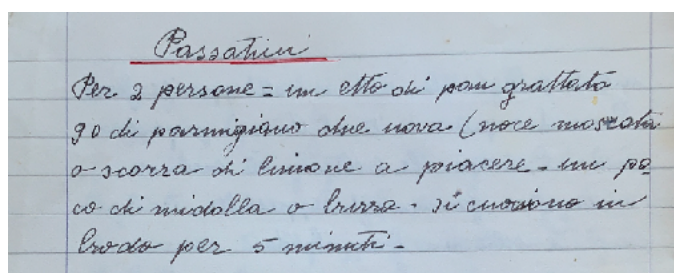 Passatini
Per 2 persone = un etto di pan grattato
90 di parmigiano due uova (noce moscata
o scorza di limone a piacere - un po
co di midolla o burro. si cuociono in
brodo per 5 minuti -